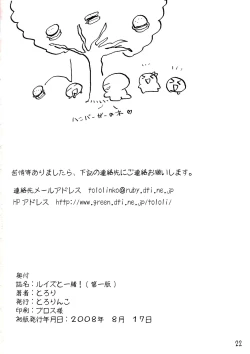 ハンバーガーの木
苦情等ありましたら、下記の連絡先にご連絡お願いします。
連絡先メールアドレス tololinko@ruby.dti.ne.jp
HP アドレス http://www.green.dti.ne.jp/tololi/
奥付
誌名：ルイズと一緒！（第一版）
著者：とろり
発行：とろりんこ
印刷：プロス様
初版発行年月日：２００８年 ８月 １７日
22